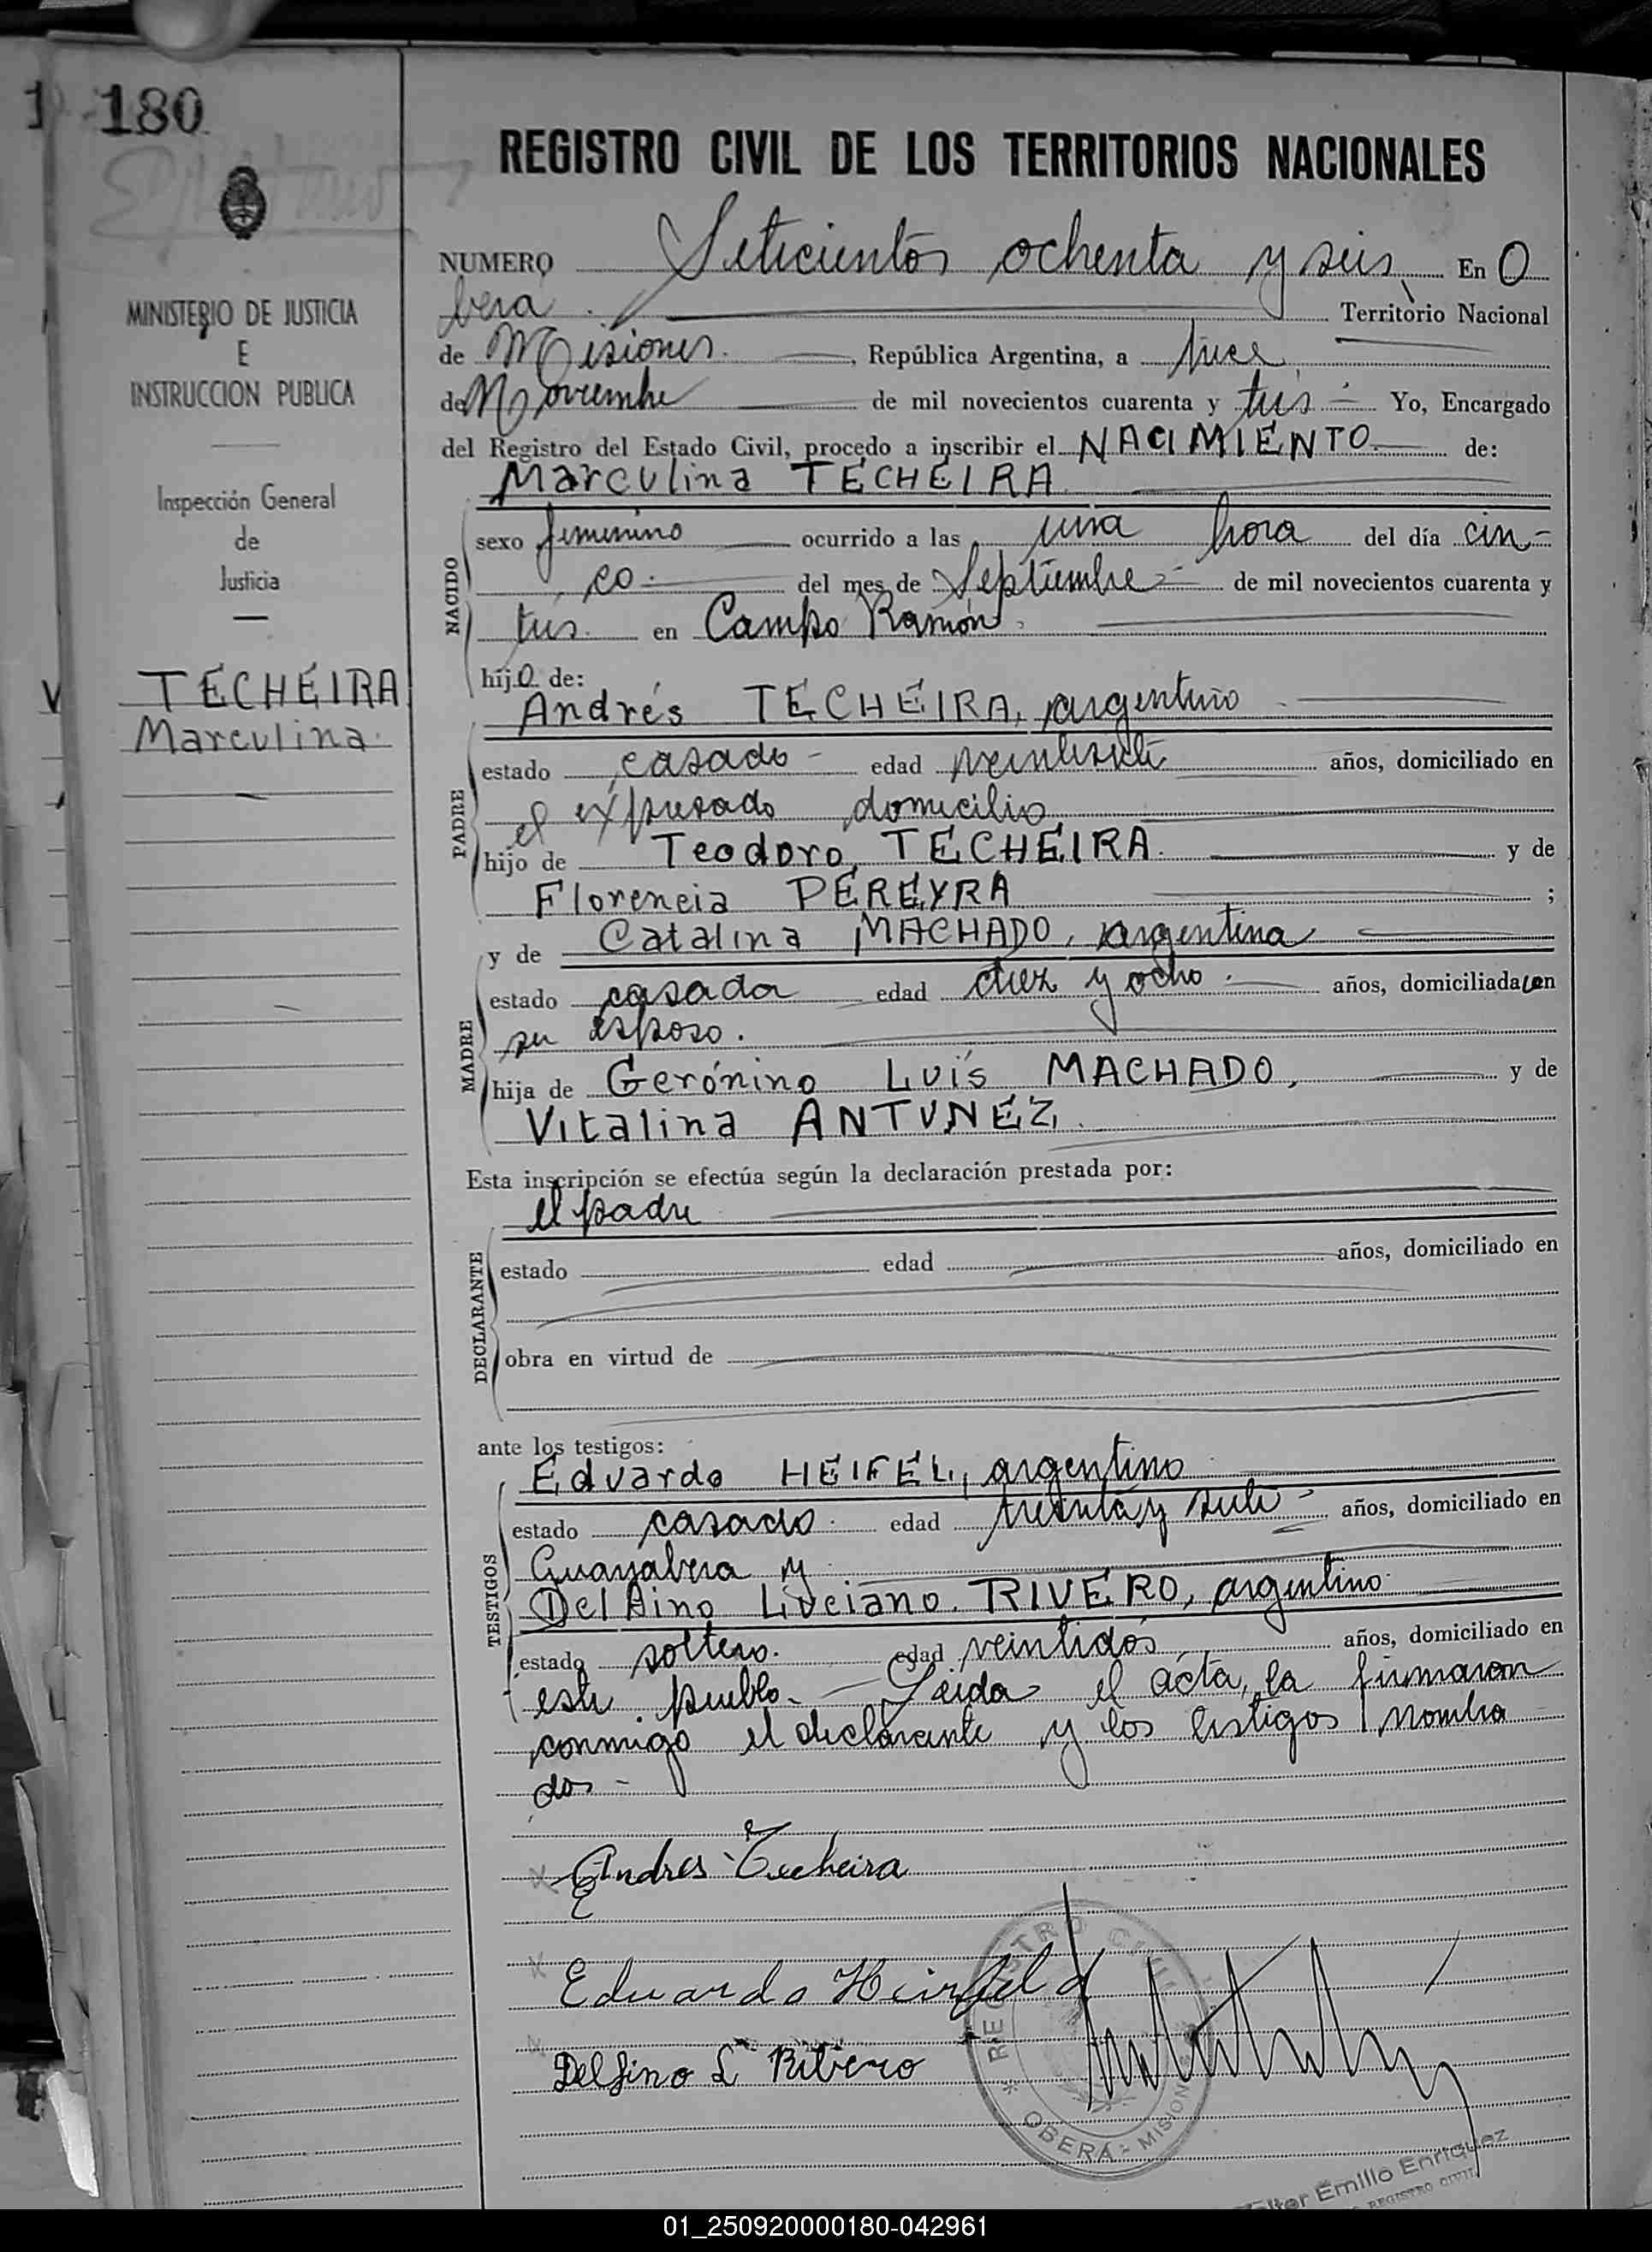 1 180
REGISTRO CIVIL DE LOS TERRITORIOS NACIONALES
NUMERO Seticientos ochenta y seis En O
bera. Territorio Nacional
MINISTERIO DE JUSTICIA
E
INSTRUCCION PUBLICA
de Misiones. , República Argentina, a
de Noviembre de mil novecientos cuarenta y tres Yo, Encargado
del Registro del Estado Civil, procedo a inscribir el NACIMIENTO de:
Marculina TECHEIRA
Inspección General
de
Justicia
NACIDO
sexo femenino ocurrido a las una hora del día cin-
co. del mes de Septiembre de mil novecientos cuarenta y
tres. en Campo Ramón.
hija de:
TECHEIRA
Marculina
PADRE
Andrés TECHEIRA, argentino
estado casado edad veintisiete años, domiciliado en
el expresado domicilio
hijo de Teodoro TECHEIRA. y de
Florencia PEREYRA ;
MADRE
y de Catalina MACHADO, argentina
estado casada edad diez y ocho años, domiciliada con
su esposo.
hija de Gerónino Luís MACHADO, y de
Vitalina ANTUNEZ.
Esta inscripción se efectúa según la declaración prestada por:
DECLARANTE
el padre
estado edad años, domiciliado en
obra en virtud de
ante los testigos:
TESTIGOS
Eduardo HEIFEL, argentino
estado casado. edad treinta y siete años, domiciliado en
Guayabera y
Delfino Liveiano RIVERO, argentino
estado soltero. edad veintidos años, domiciliado en
este pueblo. Leida el acta, la firmaron
conmigo el declarante y los testigos nombra
dos-
Andres Techeira
Eduardo Heirfeld
Delfino L Ribero
REGISTRO CIVIL
* OBERA - MISIONES
Emilio Enriquez
REGISTRO CIVIL
01_250920000180-042961